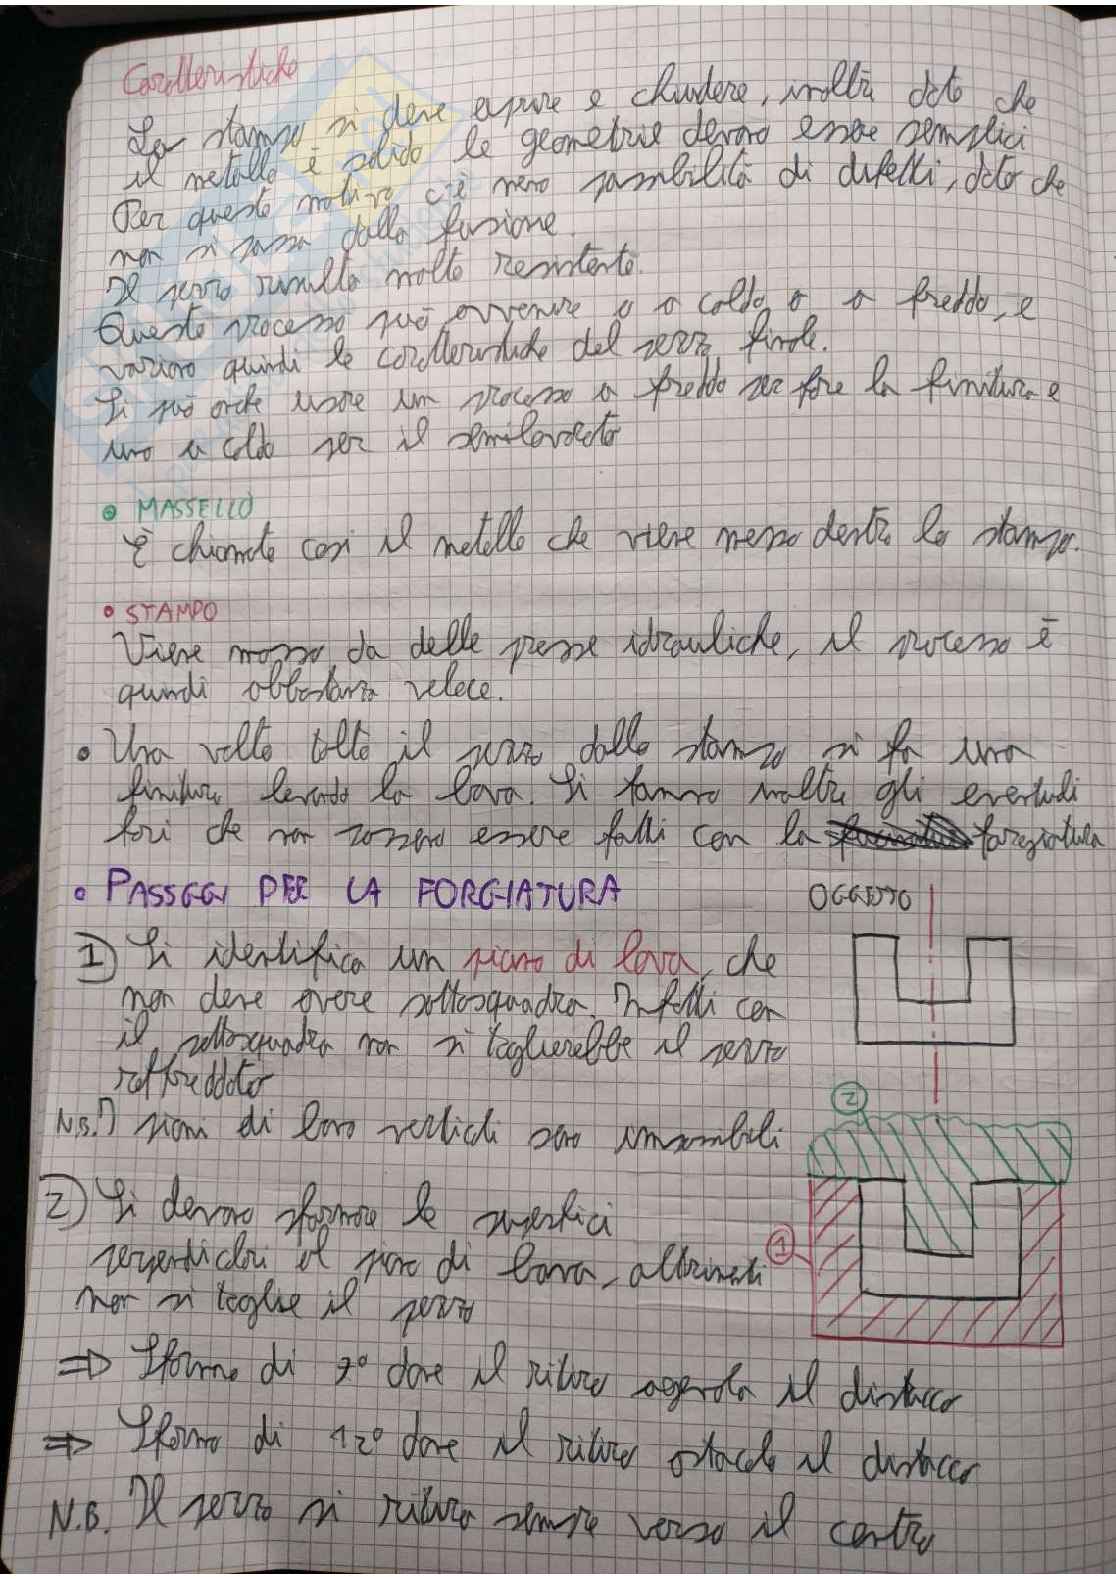 Caratteristiche
Lo stampo si deve aprire e chiudere, inoltre dato che
il metallo è solido le geometrie devono essere semplici
Per questo motivo c'è meno possibilità di difetti, dato che
non si passa dalla fusione.
Il pezzo risulta molto resistente.
Questo processo può avvenire o a caldo o a freddo, e
variano quindi le caratteristiche del pezzo finale.
Si può anche usare un processo a freddo per fare la finitura e
uno a caldo per il semilavorato
• MASSELLO
È chiamato così il metallo che viene messo dentro lo stampo.
• STAMPO
Viene mosso da delle presse idrauliche, il processo è
quindi abbastanza veloce.
• Una volta tolto il pezzo dallo stampo si fa una
finitura levando la bava. Si fanno inoltre gli eventuali
fori che non possono essere fatti con la forgiatura
• PASSAGGI PER LA FORGIATURA
OGGETTO
1) Si identifica un piano di bava, che
non deve avere sottosquadra. Infatti con
il sottosquadra non si toglierebbe il pezzo
raffreddato
N.B. I piani di bava verticali sono impossibili
2
2) Si devono sformare le superfici
perpendicolari al piano di bava, altrimenti
1
non si toglie il pezzo
⇒ Sformo di 7° dove il ritiro agevola il distacco
⇒ Sformo di 12° dove il ritiro ostacola il distacco
N.B. Il pezzo si ritira sempre verso il centro